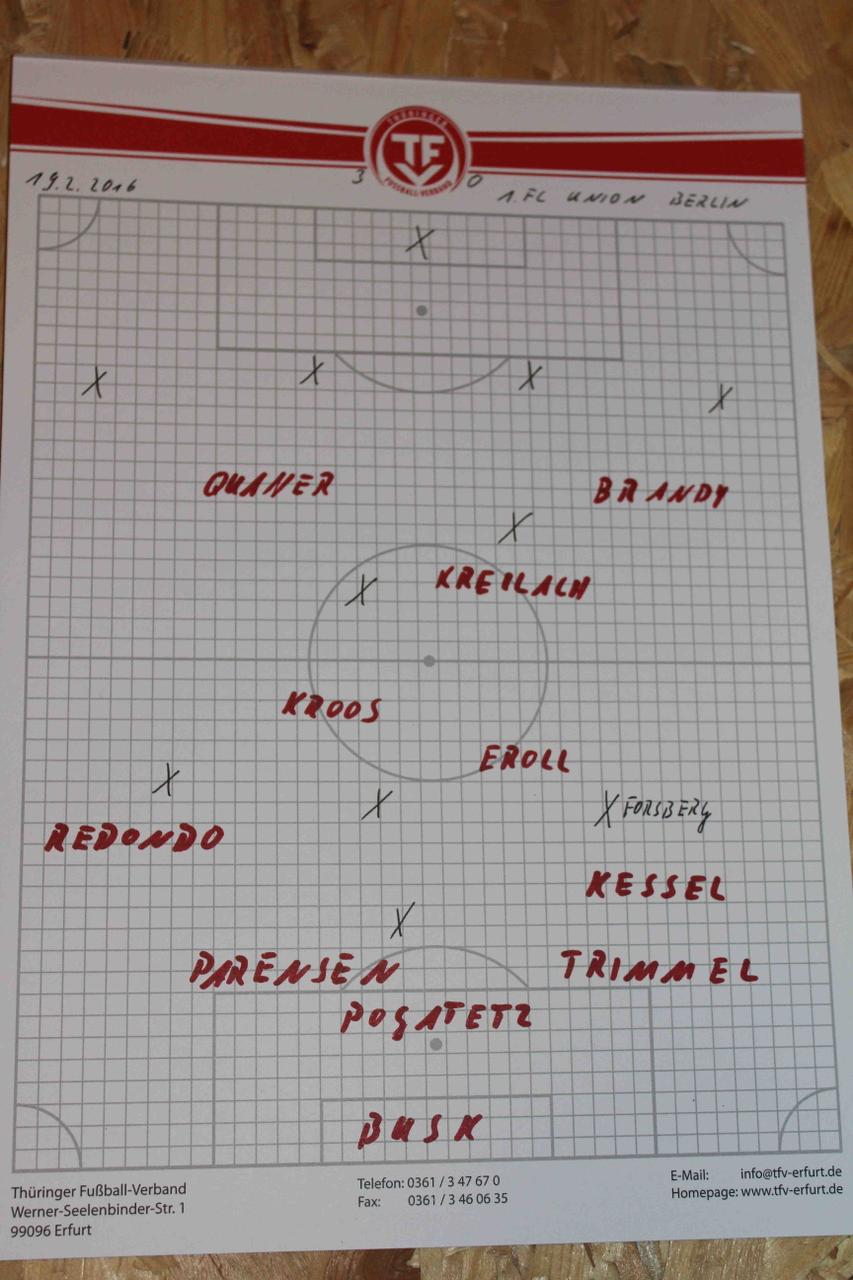 THÜRINGER
TF
FUSSBALL-VERBAND
19.2.2016
3 0
1.FC UNION BERLIN
X
X X X X
QUANER BRANDY
X
X KREILACH
KROOS
EROLL
X X X FORSBERG
REDONDO
KESSEL
X
PARENSEN TRIMMEL
POGATETZ
BUSK
Thüringer Fußball-Verband
Werner-Seelenbinder-Str. 1
99096 Erfurt
Telefon: 0361 / 3 47 67 0
Fax: 0361 / 3 46 06 35
E-Mail: info@tfv-erfurt.de
Homepage: www.tfv-erfurt.de